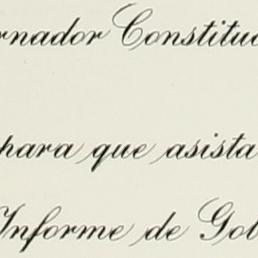 rnador Constituc
para que asista
Informe de Gob